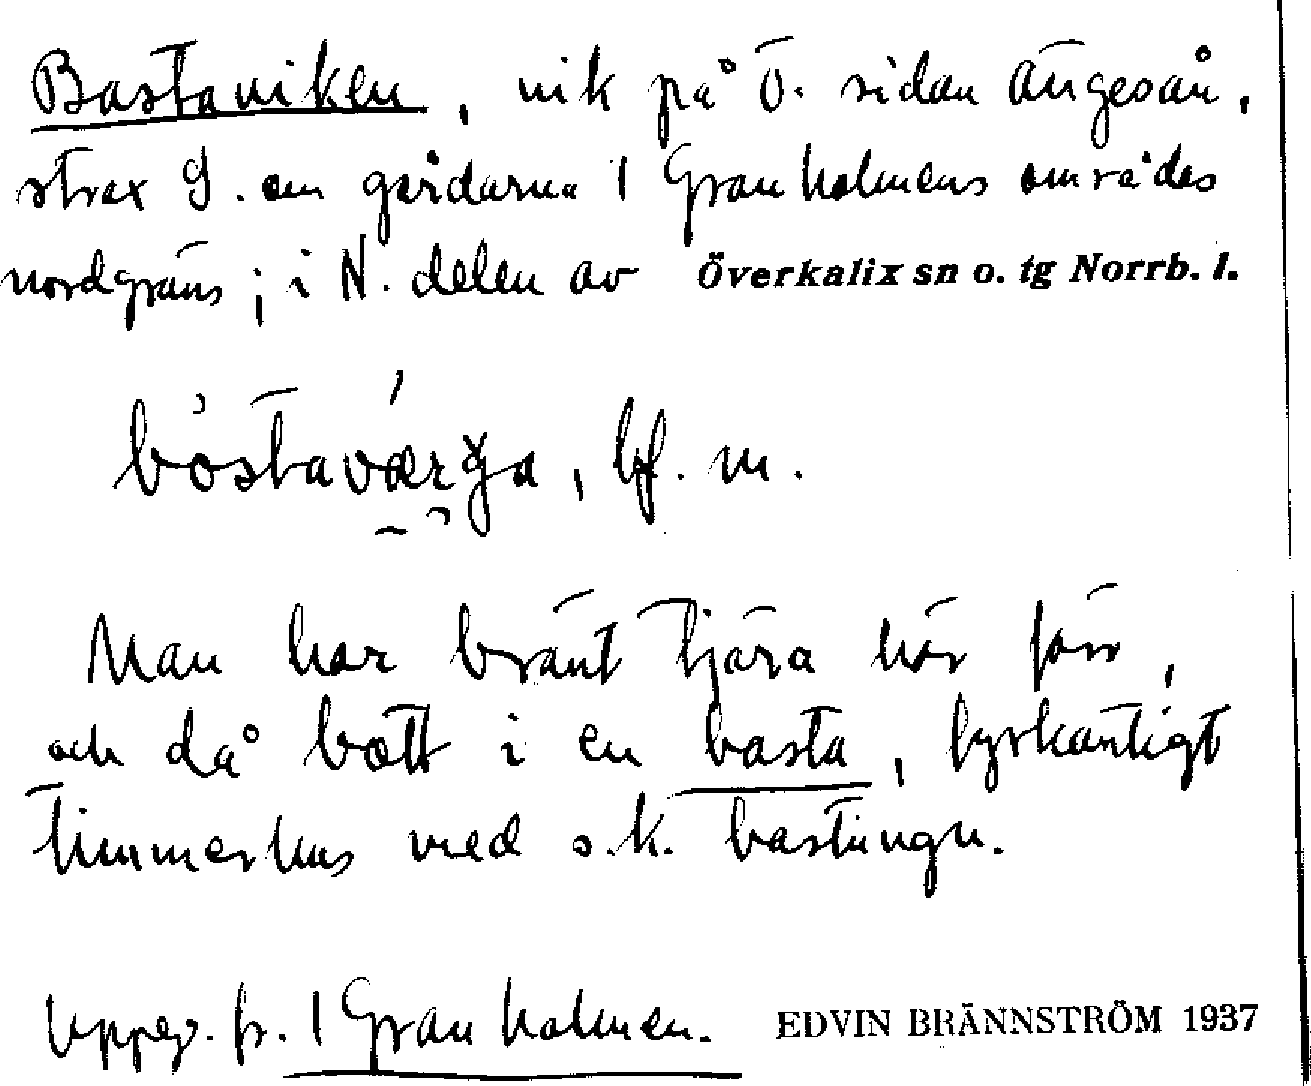 Bastaviken, vik på Ö. sidan Ängesån,
strax S. om gårdarna 1 Granholmens områdes
nordgräns; i N. delen av Överkalix sn o. tg Norrb. l.
bf. m.
Man har bränt tjära här förr,
och då bott i en basta, fyrkantigt
timmerhus med s.k. bastuugn.
Uppg. fr. 1 Granholmen. EDVIN BRÄNNSTRÖM 1937